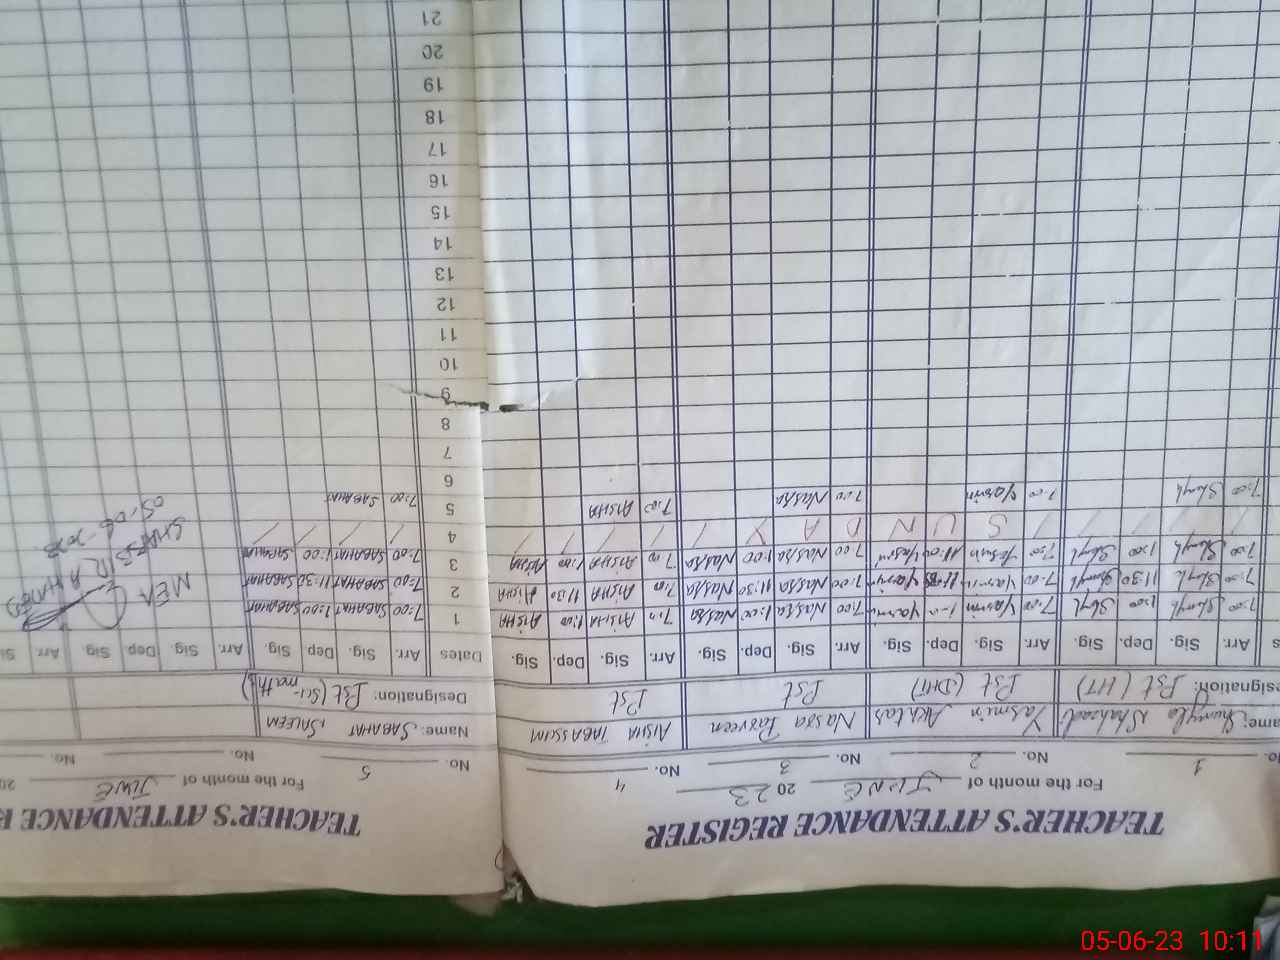 TEACHER'S ATTENDANCE REGISTER
For the month of JUNE 2023
No. 1 No. 2 No. 3 No. 4
Name: Shumyla Shahzad Yasmin Akhtar Nassa Parveen AISHA TABASSUM
Designation: Pst (HT) Pst (DHT) Pst Pst
Dates Arr. Sig. Dep. Sig. Arr. Sig. Dep. Sig. Arr. Sig. Dep. Sig. Arr. Sig. Dep. Sig.
7:00 1:00 7:00 Yasmin 1:00 Yasmin 7:00 Nassa 1:00 Nassa 7:00 AISHA 1:00 AISHA
7:00 11:30 7:00 Yasmin 11:30 Yasmin 7:00 Nassa 11:30 Nassa 7:00 AISHA 11:30 AISHA
7:00 1:00 7:00 Yasmin Yasmin 7:00 Nassa 1:00 Nassa 7:00 AISHA 1:00 AISHA
S U N D A Y
7:00 7:00 Yasmin 7:00 Nassa 7:00 AISHA
TEACHER'S ATTENDANCE R
For the month of JUNE 20
No. 5 No. No.
Name: SABAHAT SALEEM
Designation: Pst (Sci-math)
Dates Arr. Sig. Dep. Sig. Arr. Sig. Dep. Sig. Arr.
1 7:00 SABAHAT 1:00 SABAHAT
2 7:00 SABAHAT 11:30 SABAHAT
3 7:00 SABAHAT 1:00 SABAHAT
4
5 7:00 SABAHAT
6
7
8
9
10
11
12
13
14
15
16
17
18
19
20
21
MEA
SHABBIR AHMED
05-06-2023
05-06-23 10:11